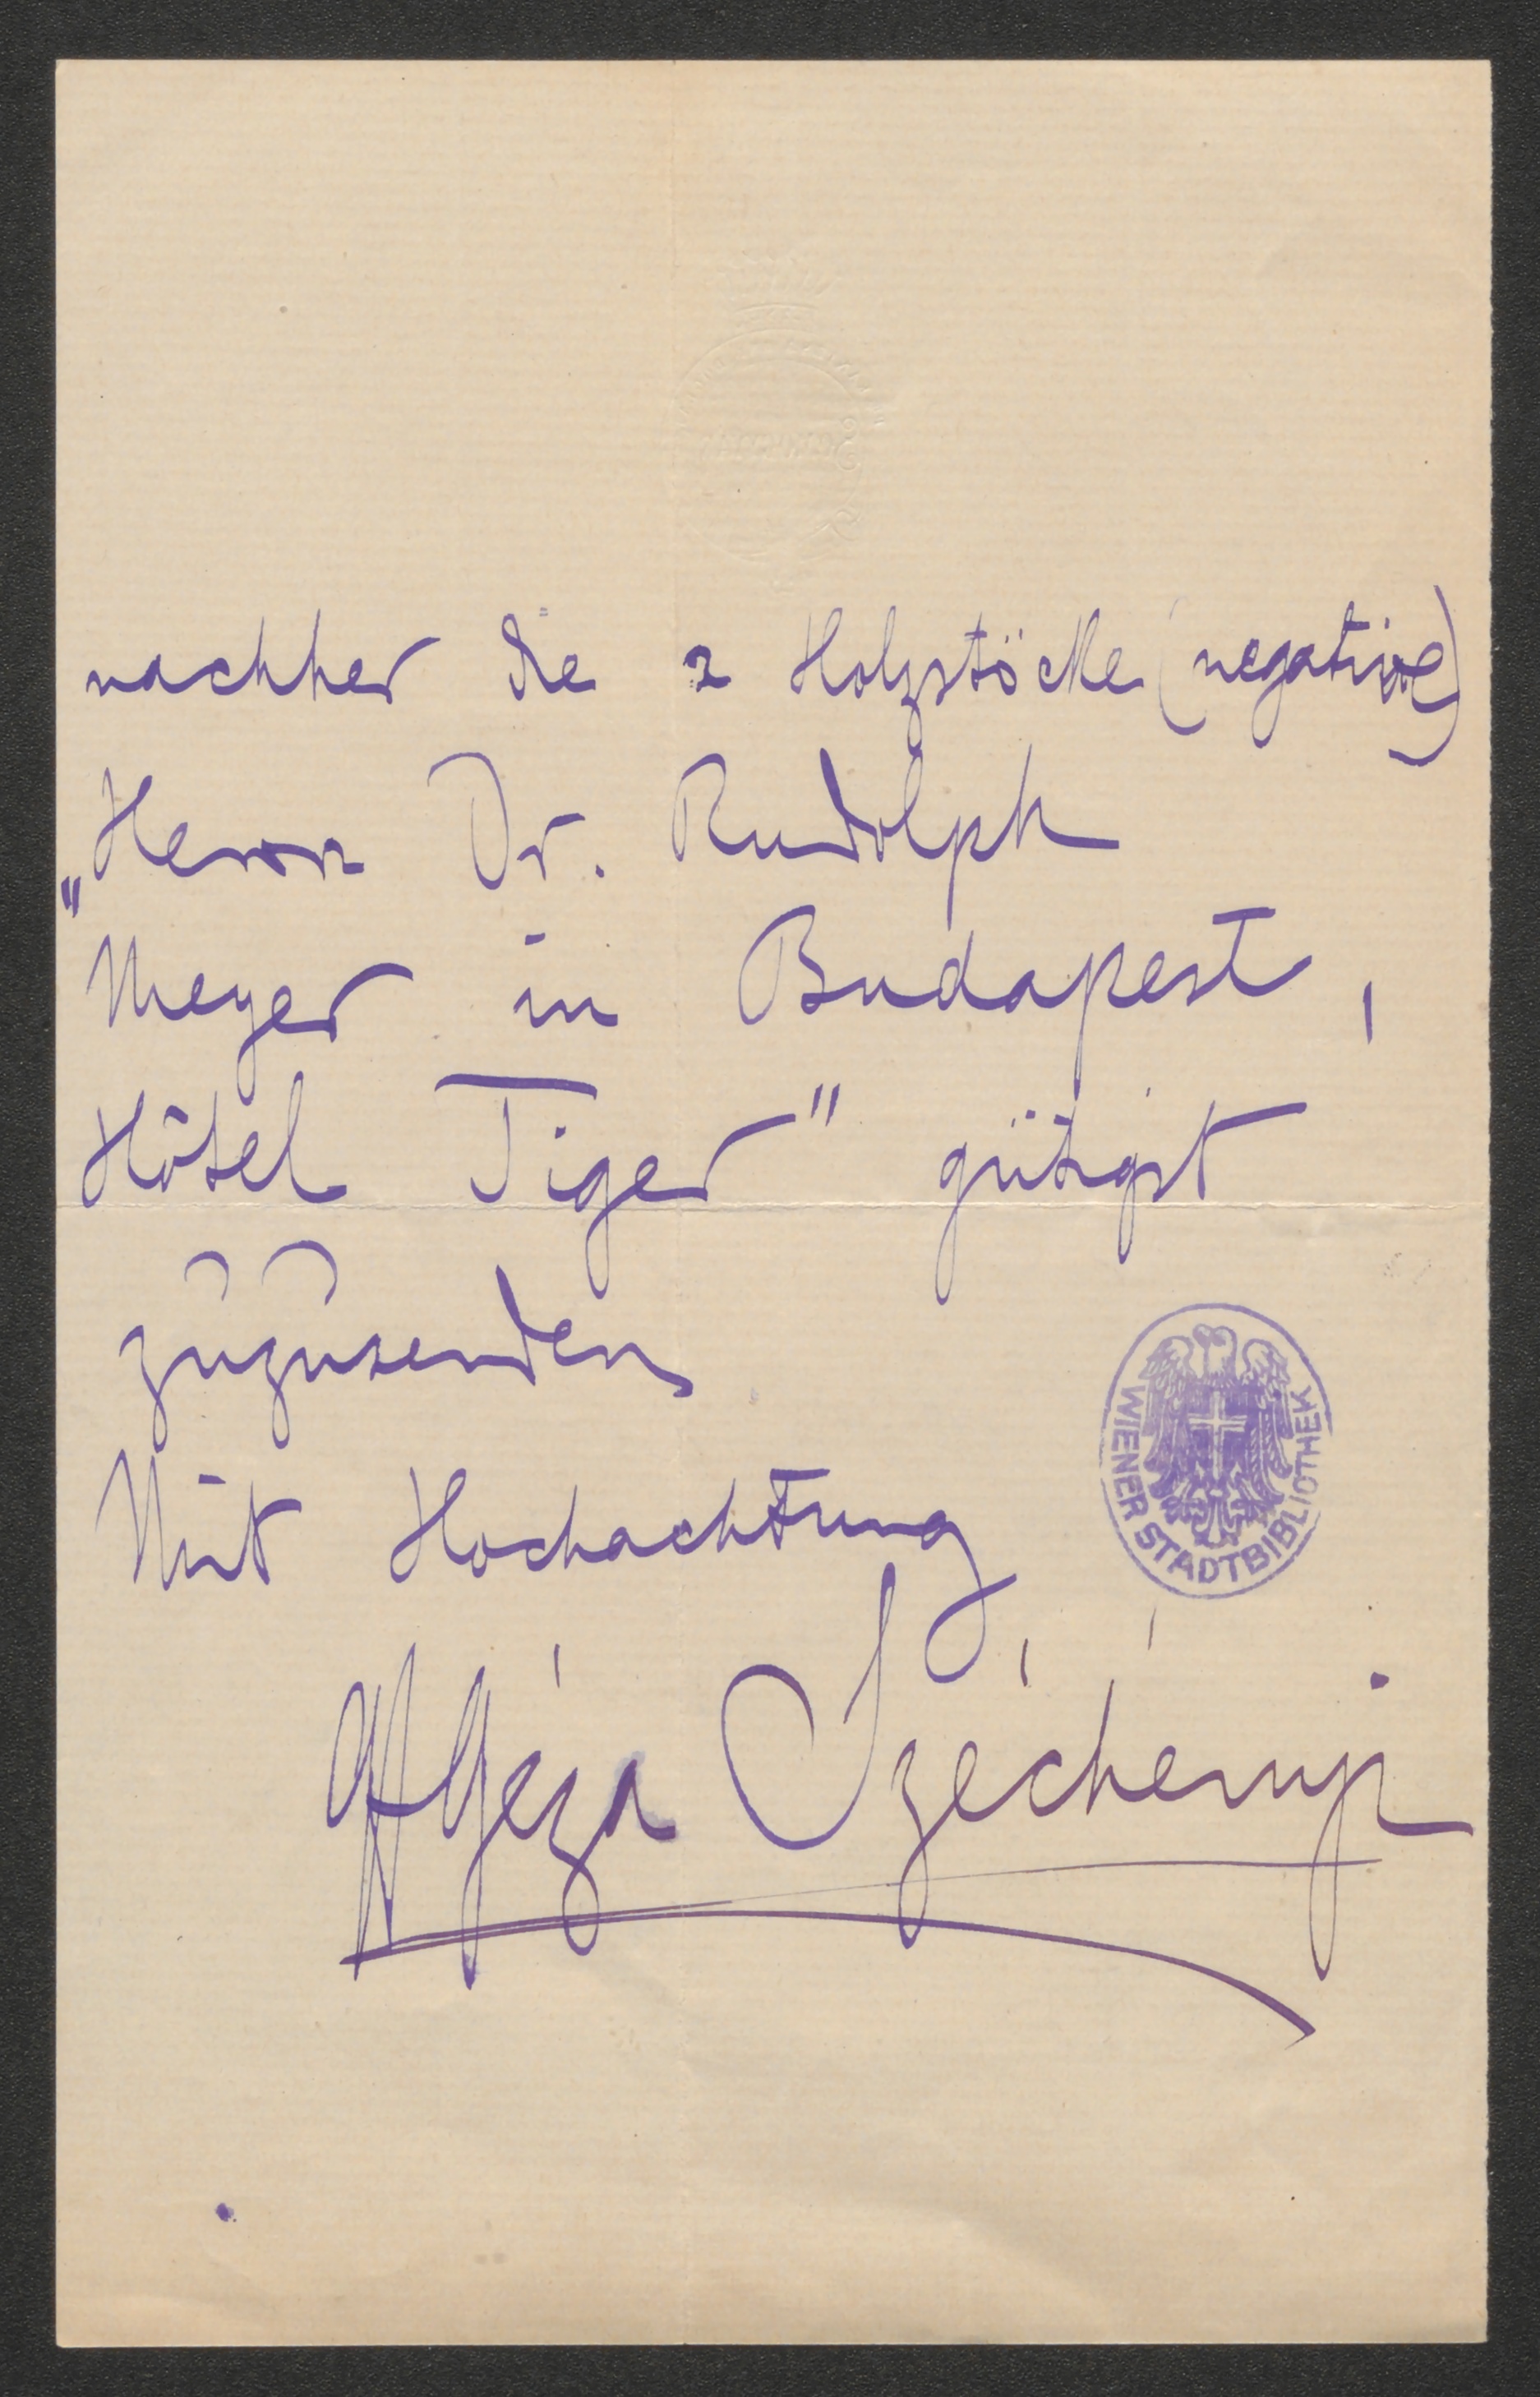 nachher die 2 Holzstöcke (negative)
„Herrn Dr. Rudolph
Meyer in Budapest,
Hôtel Tiger" gütigst
zuzusenden
Mit Hochachtung
Géza Széchényi
WIENER STADTBIBLIOTHEK